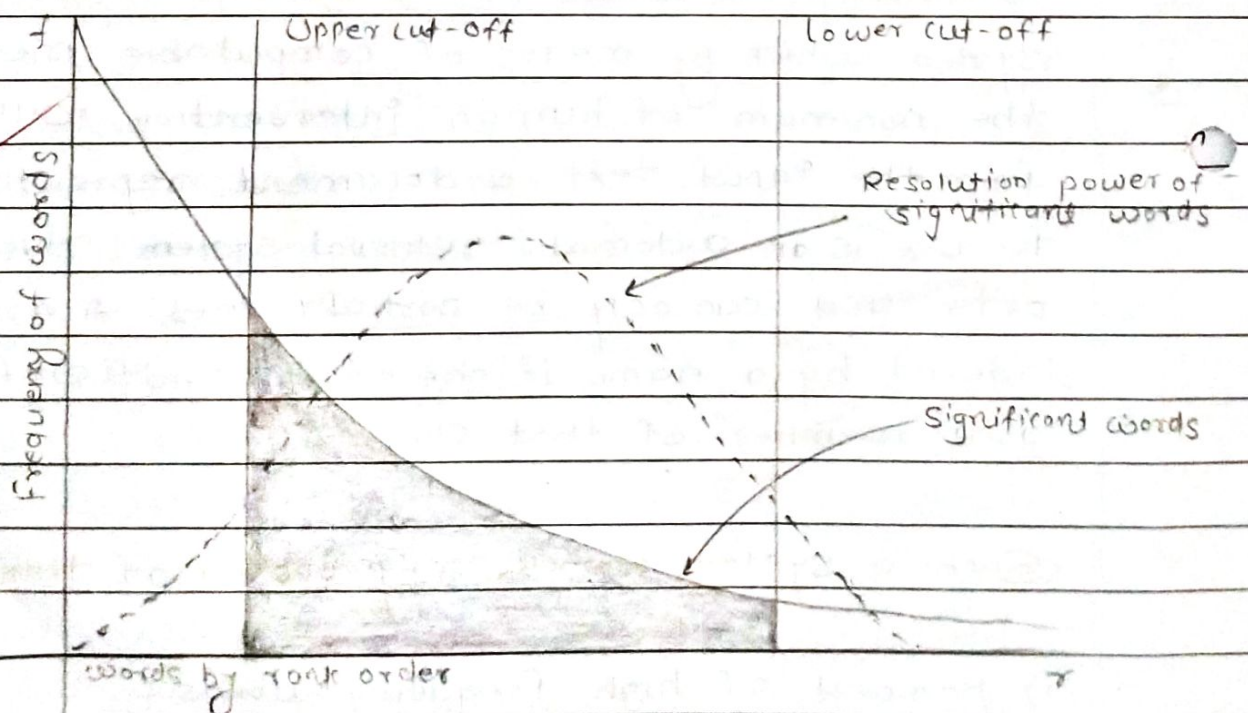 f
Upper cut-off
Lower cut-off
Frequency of words
Resolution power of
significant words
Significant words
words by rank order
r